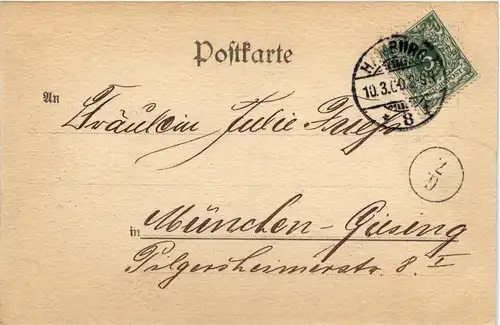 Postkarte
HAMBURG
10.3.00.
* 8
An
Fräulein Julie
in München-Giesing
Pilgersheimerstr. 8 I